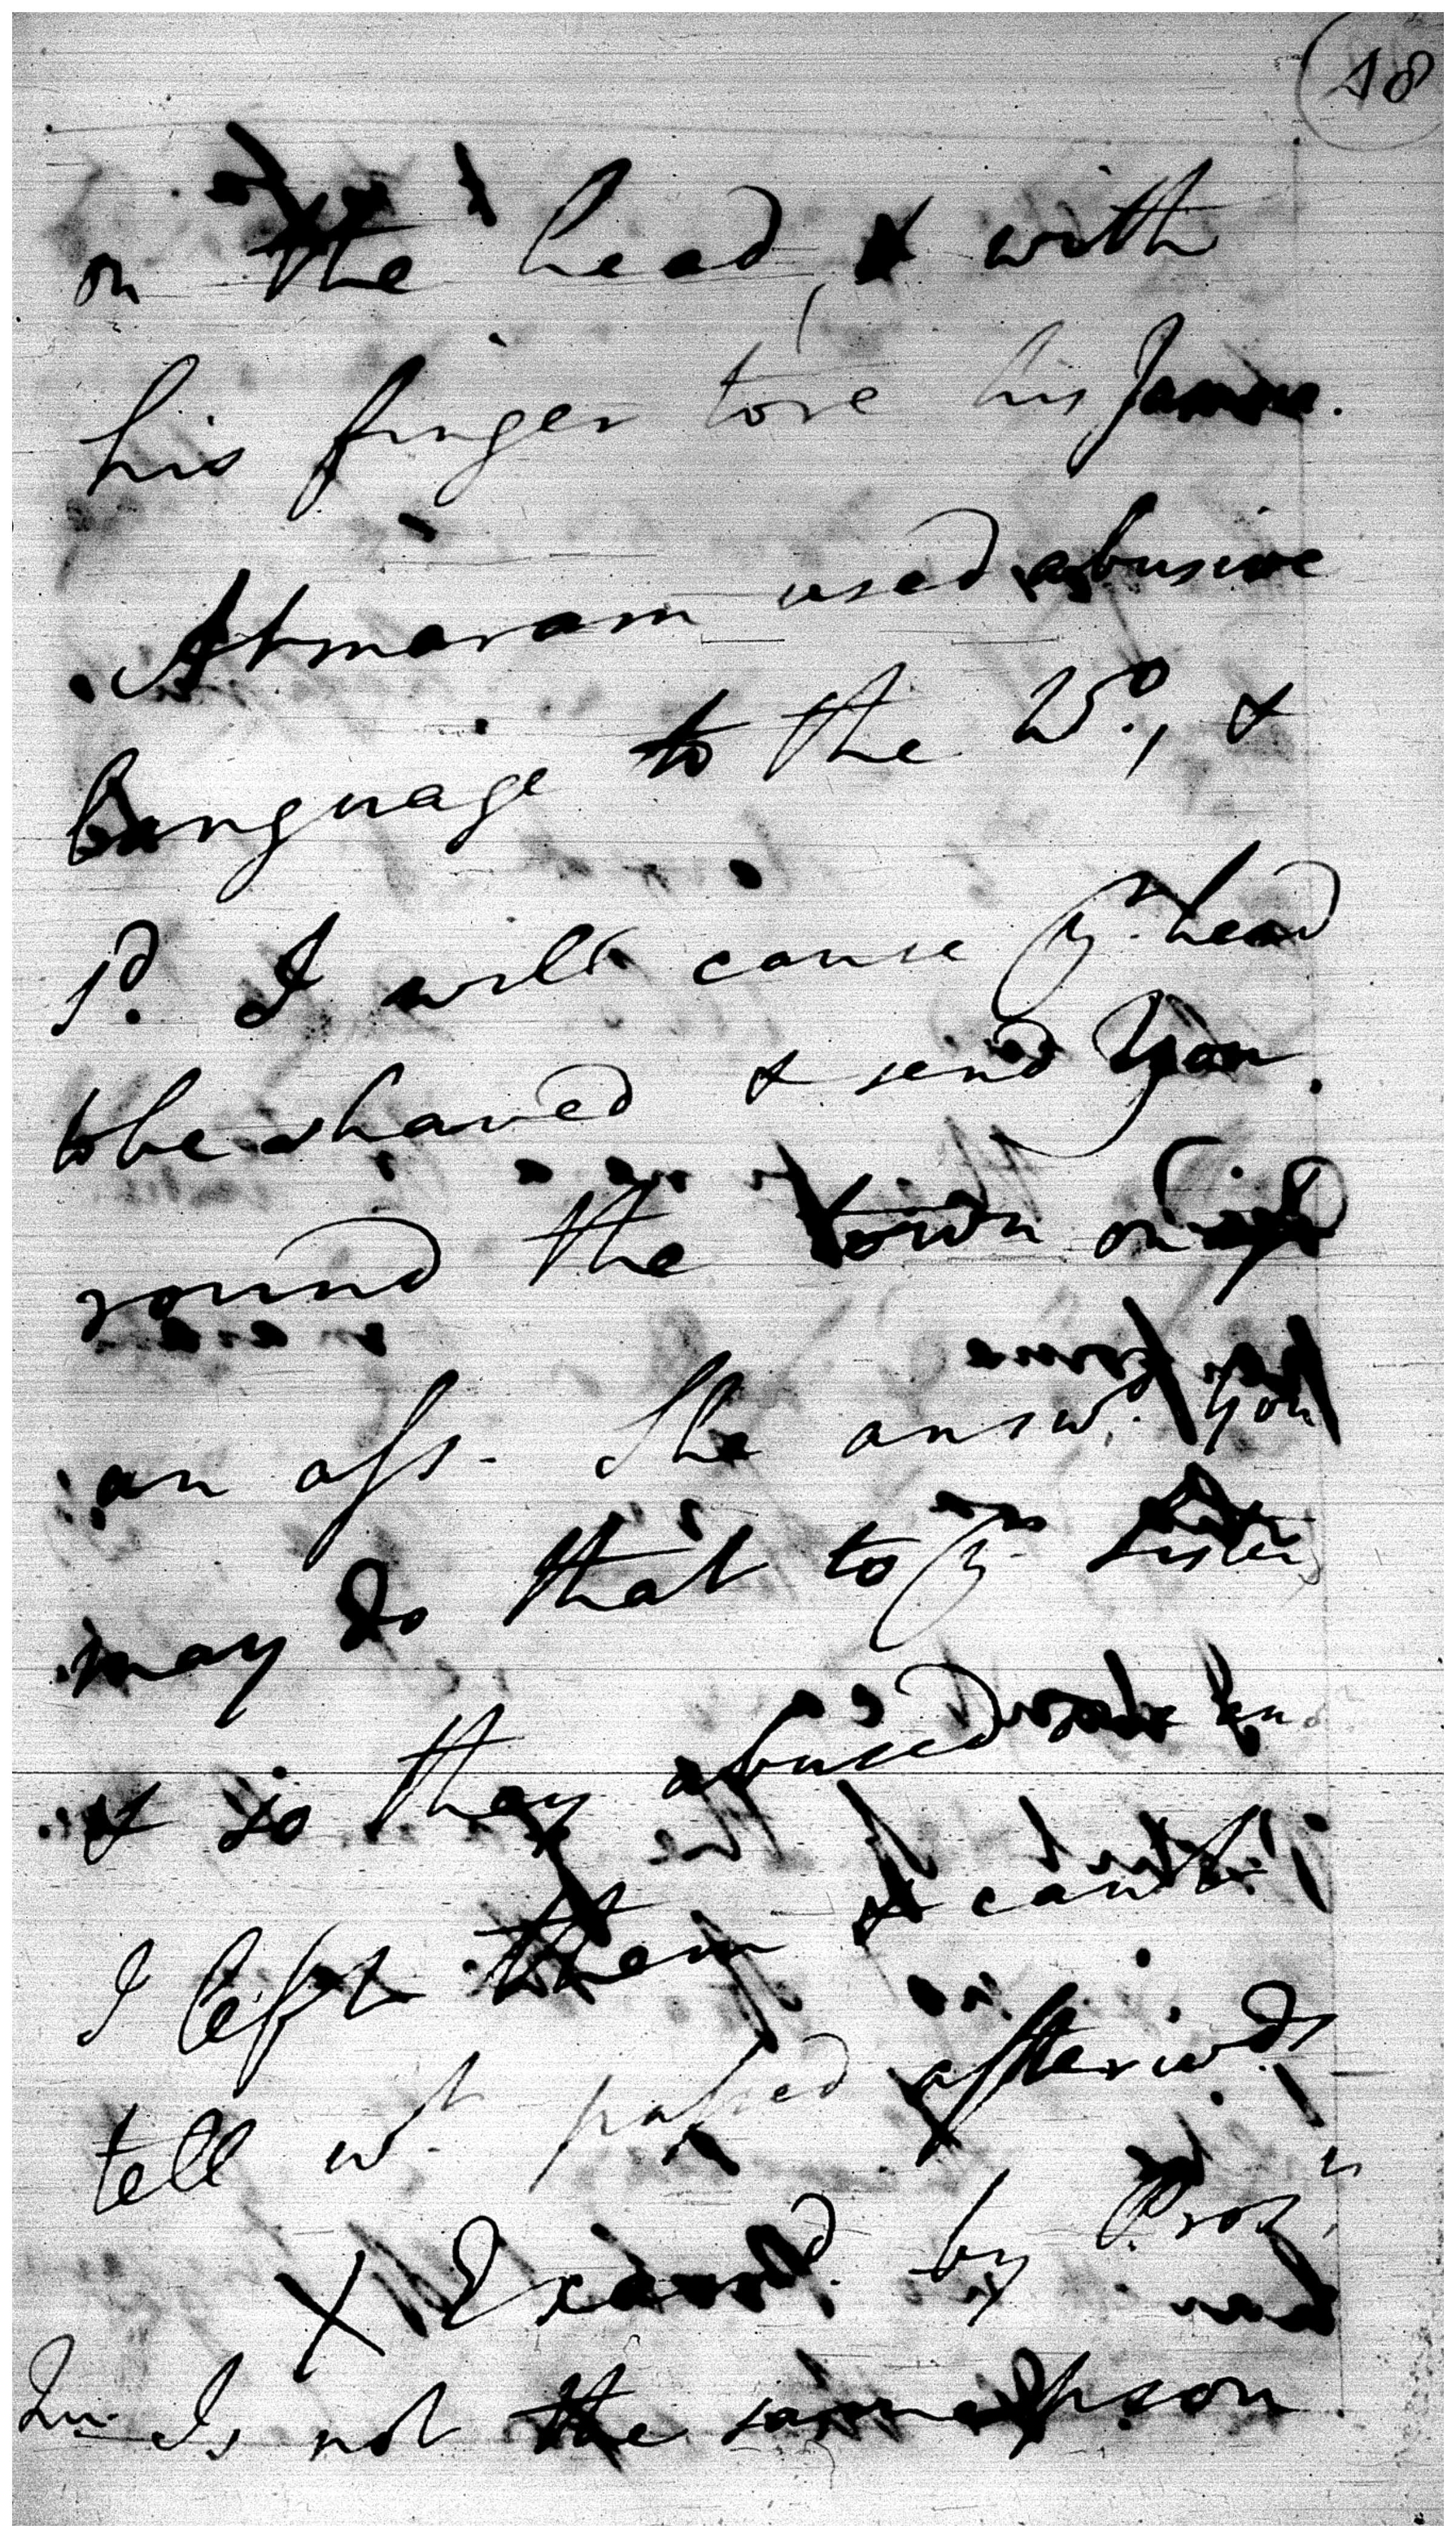 48
on the head, & with
his finger tore his Jamma.
Atmaram used abusive
language to the Wo., &
sd. I will cause yr. head
to be shaved & send you
round the town on
an ass. She answd. you
may do that to yr. sister
& so they abused
I left them & cannot
tell wt. passed afterwds.
X Examd. by Prosr.
Qu. Is not the same pson